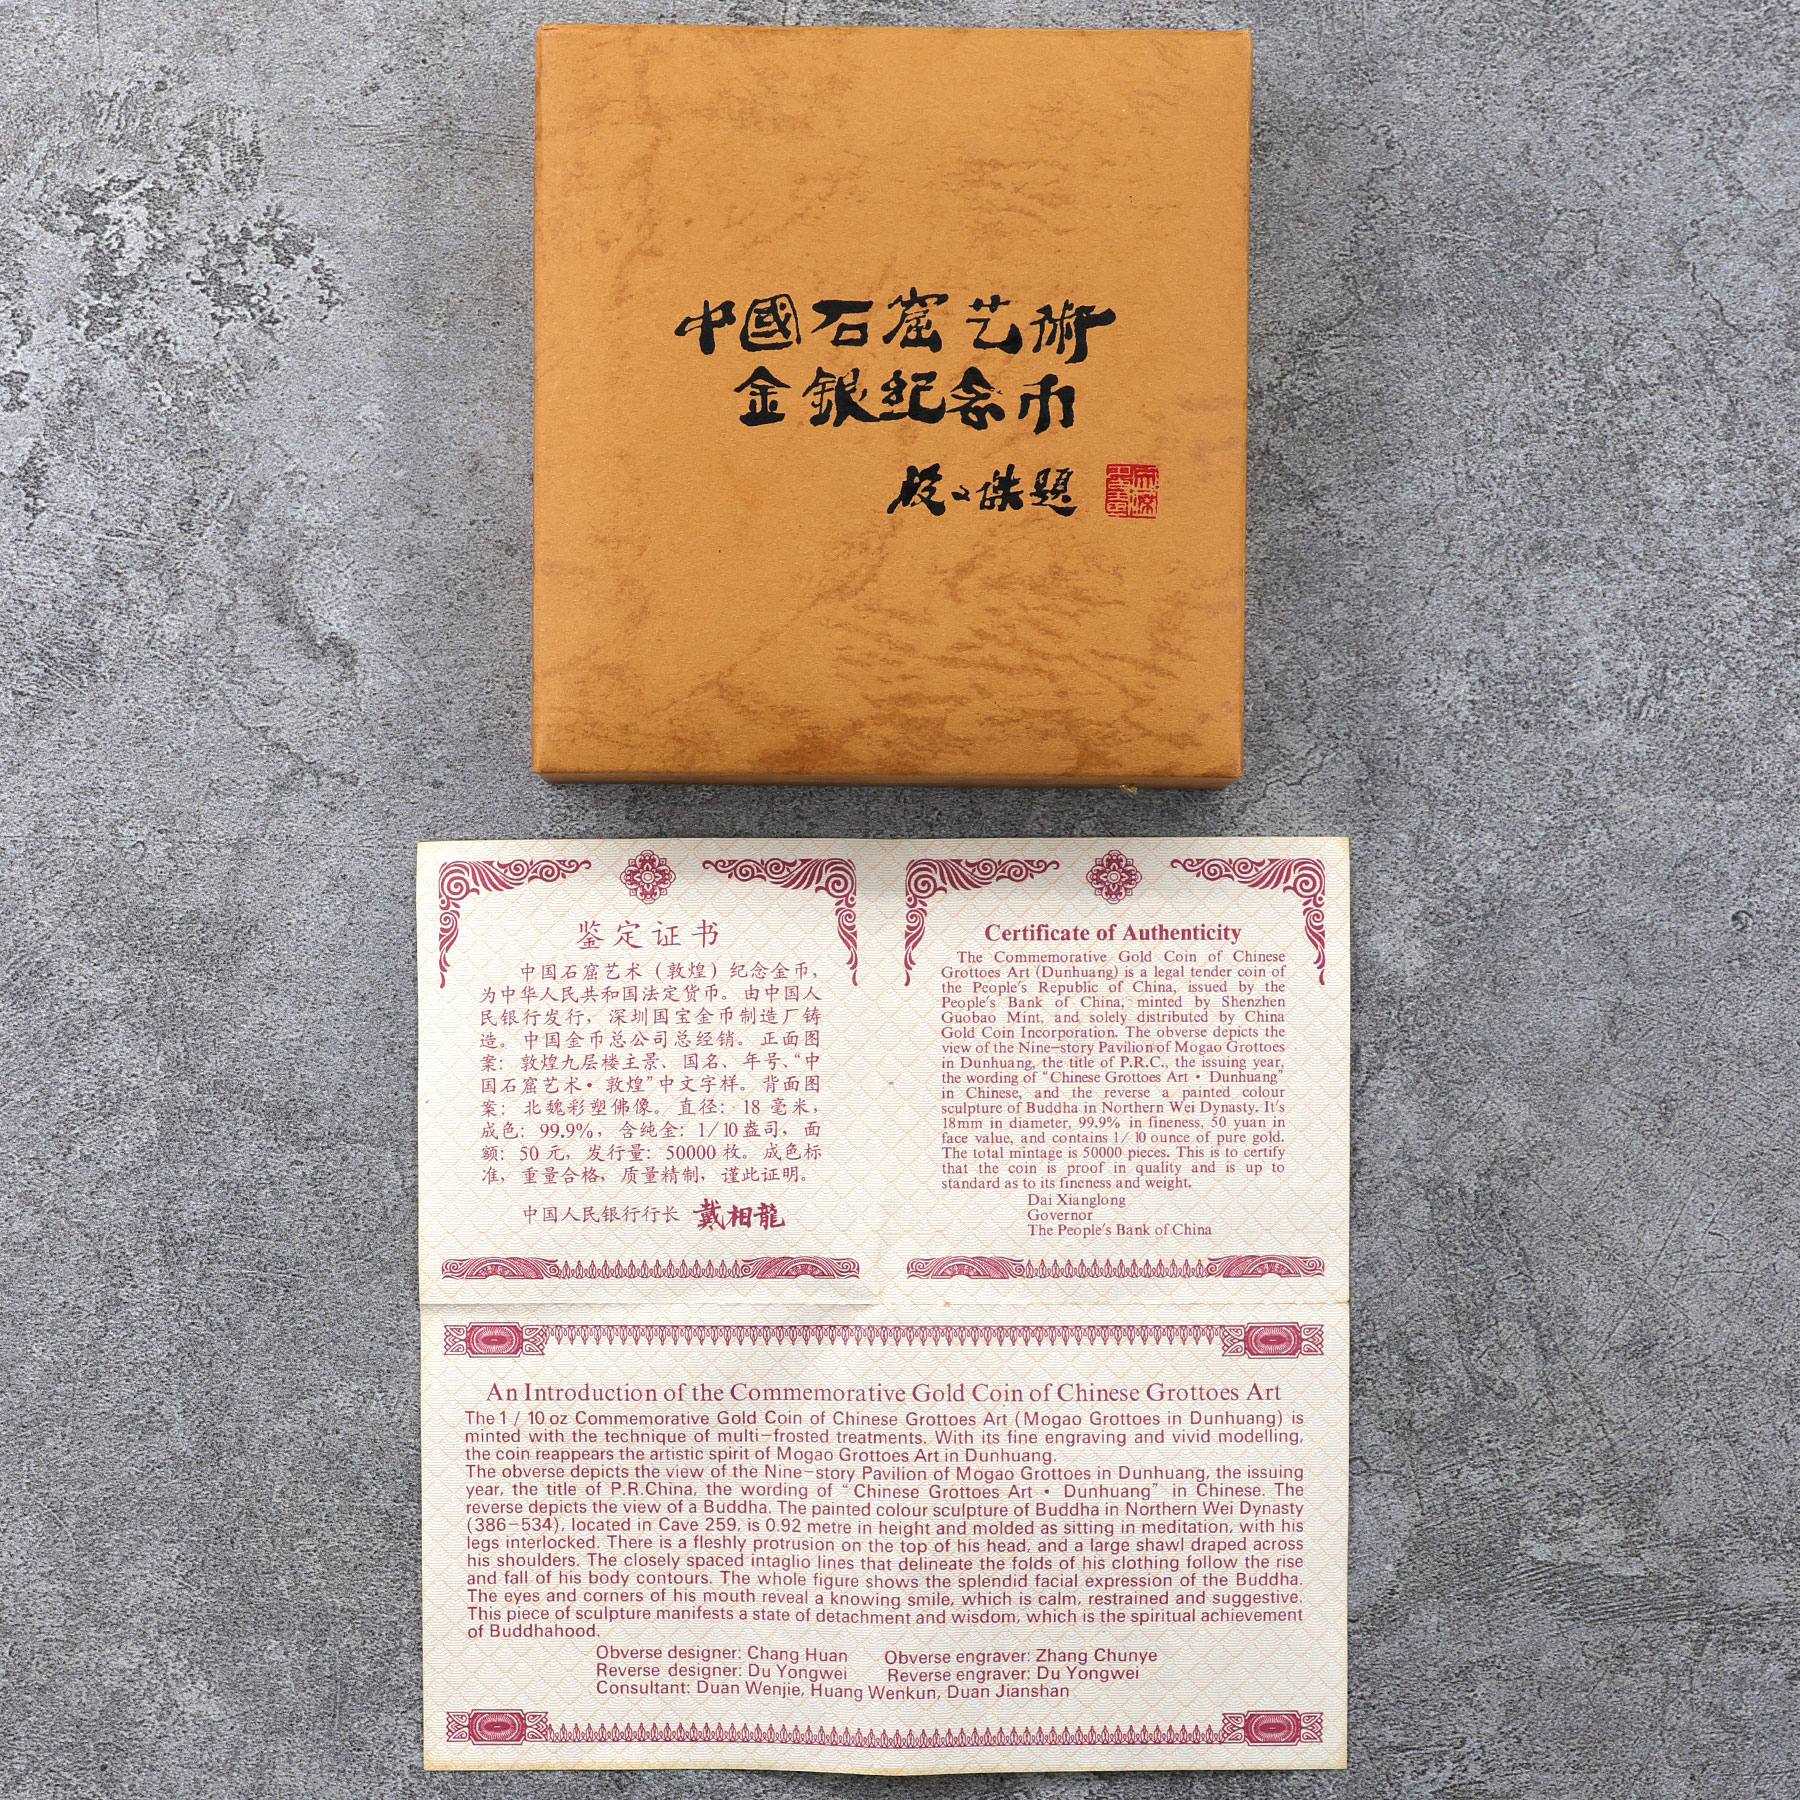 中國石窟艺術
金銀纪念币
段文傑題
鉴定证书
中国石窟艺术（敦煌）纪念金币，
为中华人民共和国法定货币。由中国人
民银行发行，深圳国宝金币制造厂铸
造。中国金币总公司总经销。正面图
案：敦煌九层楼主景、国名、年号、“中
国石窟艺术·敦煌”中文字样。背面图
案：北魏彩塑佛像。直径：18 毫米，
成色：99.9%，含纯金：1/10 盎司，面
额：50 元，发行量：50000 枚。成色标
准，重量合格，质量精制，谨此证明。
中国人民银行行长 戴相龍
Certificate of Authenticity
The Commemorative Gold Coin of Chinese
Grottoes Art (Dunhuang) is a legal tender coin of
the People's Republic of China, issued by the
People's Bank of China, minted by Shenzhen
Guobao Mint, and solely distributed by China
Gold Coin Incorporation. The obverse depicts the
view of the Nine-story Pavilion of Mogao Grottoes
in Dunhuang, the title of P.R.C., the issuing year,
the wording of “Chinese Grottoes Art • Dunhuang”
in Chinese, and the reverse a painted colour
sculpture of Buddha in Northern Wei Dynasty. It's
18mm in diameter, 99.9% in fineness, 50 yuan in
face value, and contains 1/10 ounce of pure gold.
The total mintage is 50000 pieces. This is to certify
that the coin is proof in quality and is up to
standard as to its fineness and weight.
Dai Xianglong
Governor
The People's Bank of China
An Introduction of the Commemorative Gold Coin of Chinese Grottoes Art
The 1 / 10 oz Commemorative Gold Coin of Chinese Grottoes Art (Mogao Grottoes in Dunhuang) is
minted with the technique of multi-frosted treatments. With its fine engraving and vivid modelling,
the coin reappears the artistic spirit of Mogao Grottoes Art in Dunhuang.
The obverse depicts the view of the Nine-story Pavilion of Mogao Grottoes in Dunhuang, the issuing
year, the title of P.R.China, the wording of “Chinese Grottoes Art • Dunhuang” in Chinese. The
reverse depicts the view of a Buddha. The painted colour sculpture of Buddha in Northern Wei Dynasty
(386-534), located in Cave 259, is 0.92 metre in height and molded as sitting in meditation, with his
legs interlocked. There is a fleshly protrusion on the top of his head, and a large shawl draped across
his shoulders. The closely spaced intaglio lines that delineate the folds of his clothing follow the rise
and fall of his body contours. The whole figure shows the splendid facial expression of the Buddha.
The eyes and corners of his mouth reveal a knowing smile, which is calm, restrained and suggestive.
This piece of sculpture manifests a state of detachment and wisdom, which is the spiritual achievement
of Buddhahood.
Obverse designer: Chang Huan Obverse engraver: Zhang Chunye
Reverse designer: Du Yongwei Reverse engraver: Du Yongwei
Consultant: Duan Wenjie, Huang Wenkun, Duan Jianshan